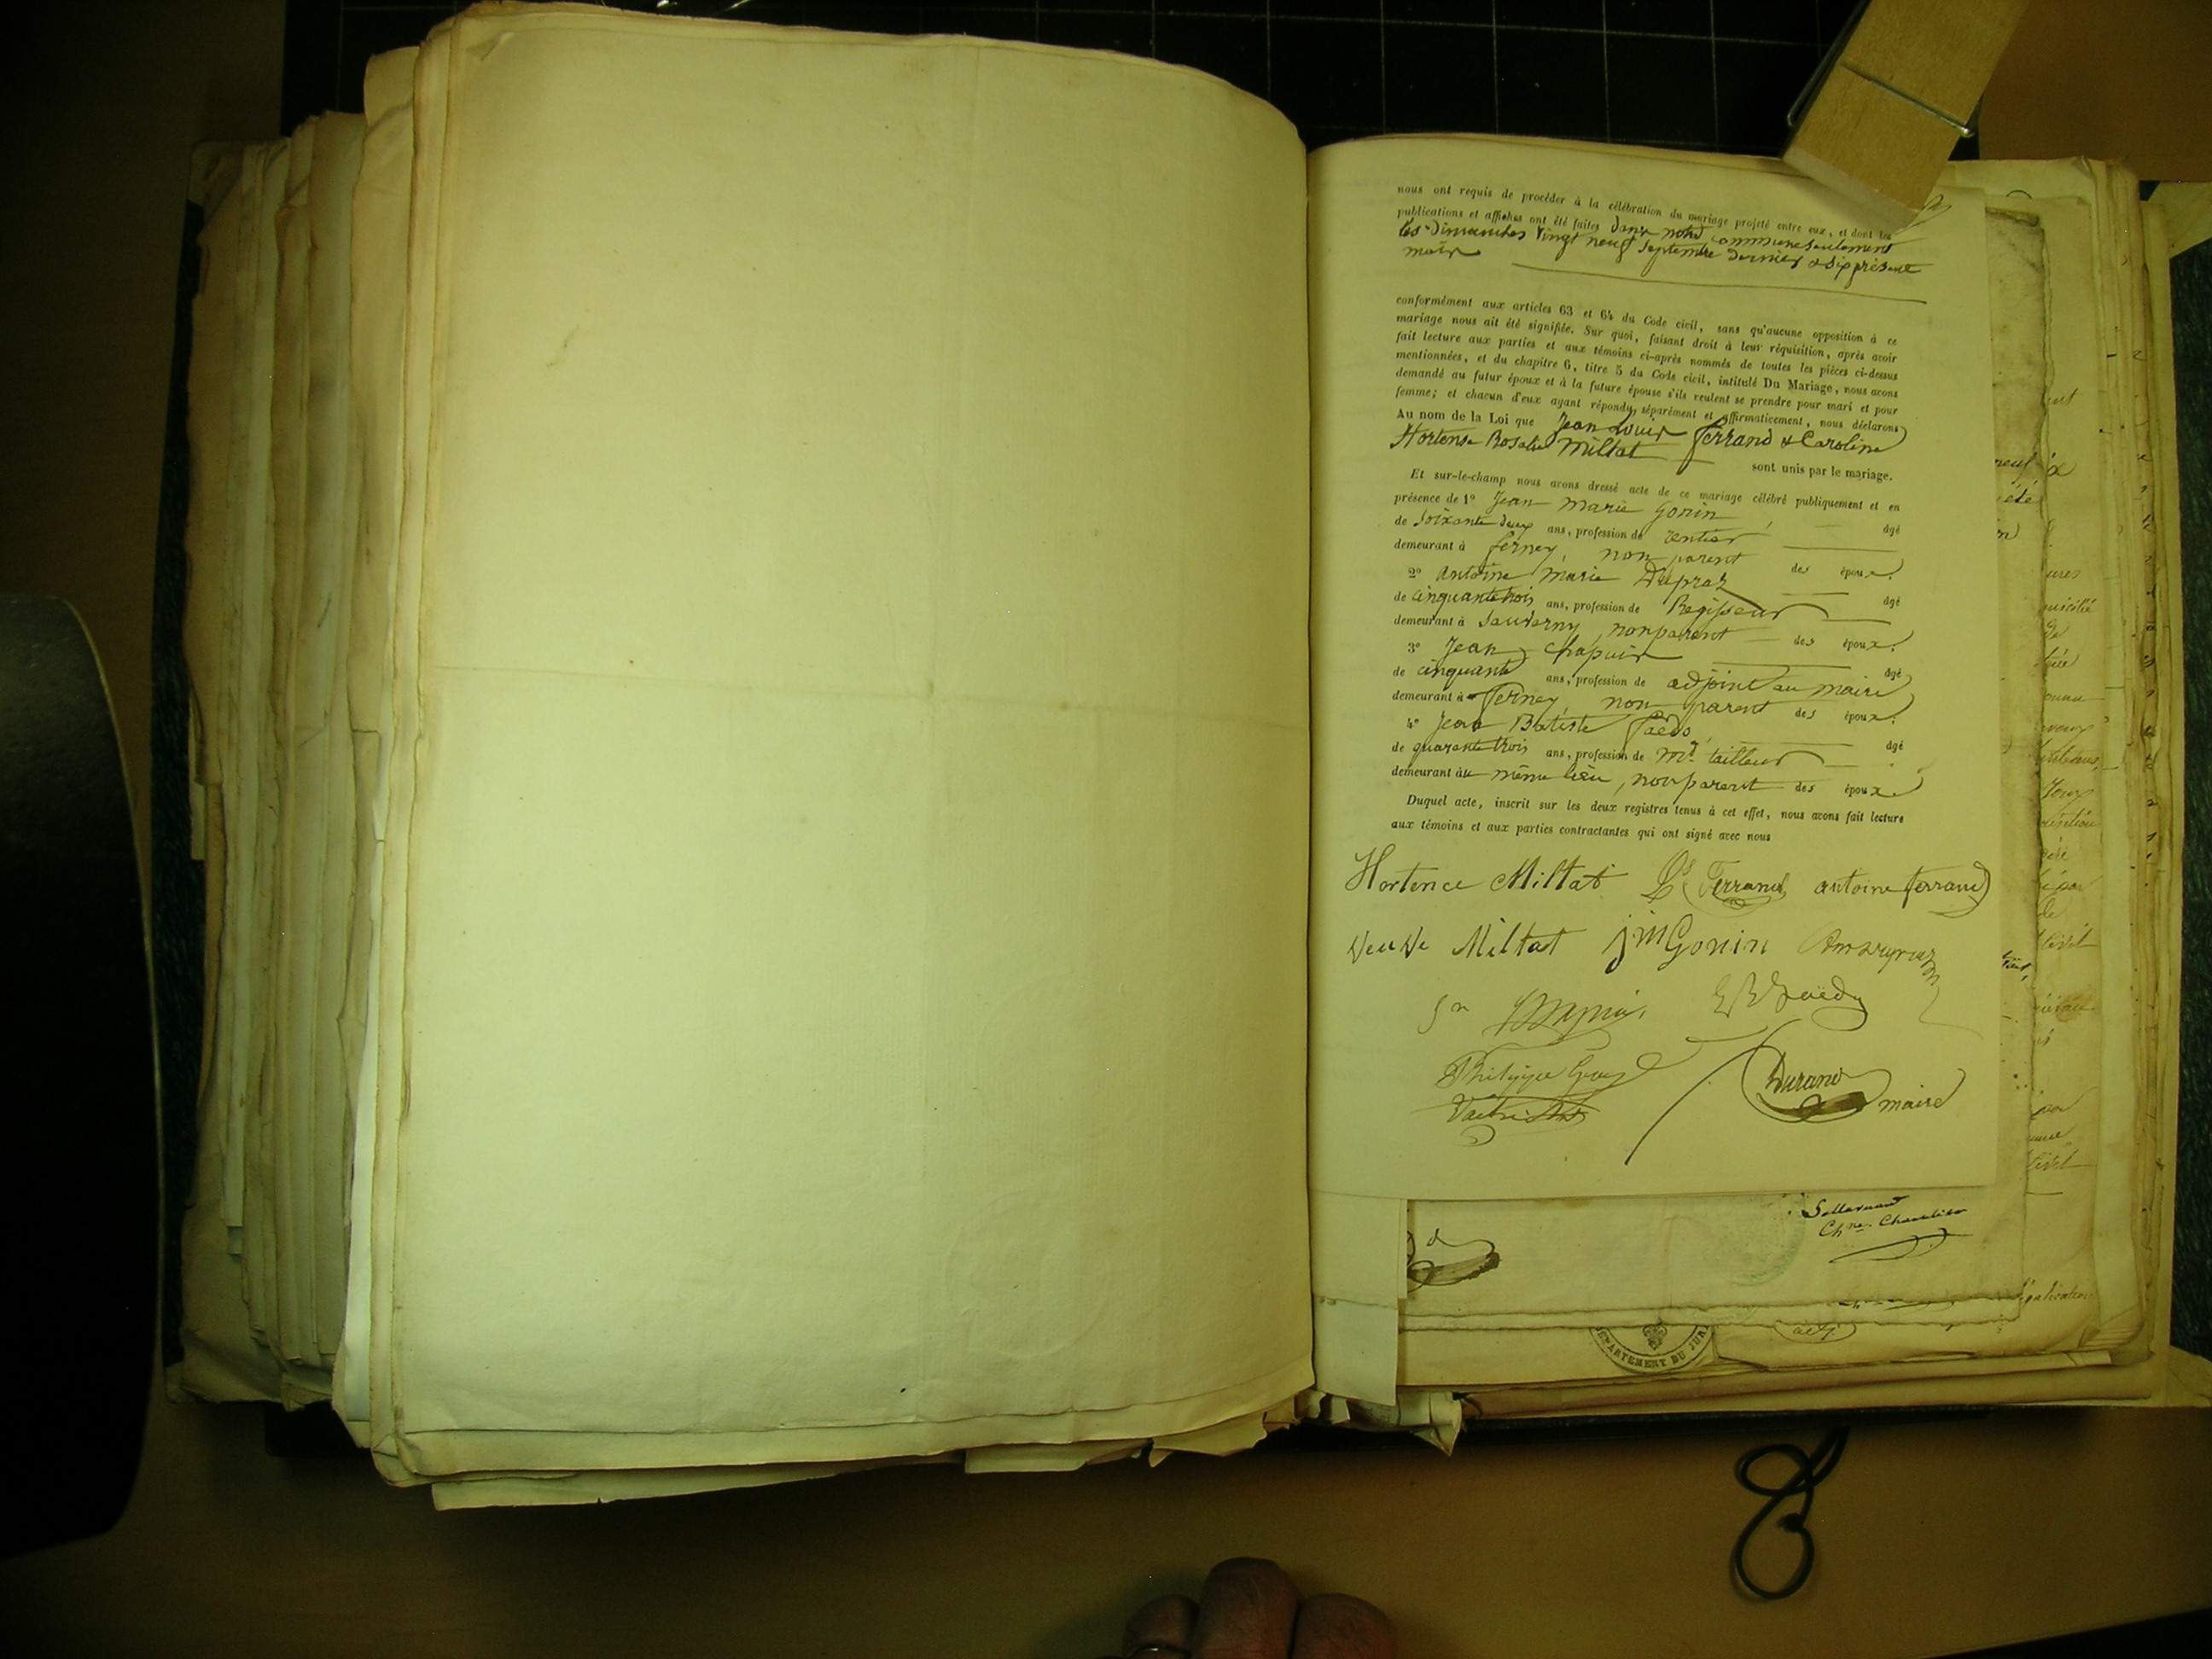 nous ont requis de procéder à la célébration du mariage projeté entre eux, et dont les
publications et affiches ont été faites dans notre commune seulement
les Dimanches vingt neuf Septembre dernier & six présent
mois
conformément aux articles 63 et 64 du Code civil, sans qu'aucune opposition à ce
mariage nous ait été signifiée. Sur quoi, faisant droit à leur réquisition, après avoir
fait lecture aux parties et aux témoins ci-après nommés de toutes les pièces ci-dessus
mentionnées, et du chapitre 6, titre 5 du Code civil, intitulé Du Mariage, nous avons
demandé au futur époux et à la future épouse s'ils veulent se prendre pour mari et pour
femme; et chacun d'eux ayant répondu, séparément et affirmativement, nous déclarons
Au nom de la Loi que Jean Louis Ferrand & Caroline
Hortense Rosalie Miltat sont unis par le mariage.
Et sur-le-champ nous avons dressé acte de ce mariage célébré publiquement et en
présence de 1° Jean Marie Gonin âgé
de soixante deux ans, profession de rentier
demeurant à Ferney, non parent des époux.
2° Antoine Marie Dupraz âgé
de cinquante trois ans, profession de Régisseur
demeurant à Sauverny, non parent des époux.
3° Jean Chapuis âgé
de cinquante ans, profession de adjoint au maire
demeurant à Ferney, non parent des époux.
4° Jean Batiste Faëdo âgé
de quarante trois ans, profession de Md. tailleur
demeurant au même lieu, non parent des époux.
Duquel acte, inscrit sur les deux registres tenus à cet effet, nous avons fait lecture
aux témoins et aux parties contractantes qui ont signé avec nous
Hortence Miltat Ls Ferrand antoine ferrand
Veuve Miltat jm Gonin Am Dupraz
Durand
maire
DÉPARTEMENT DU JURA